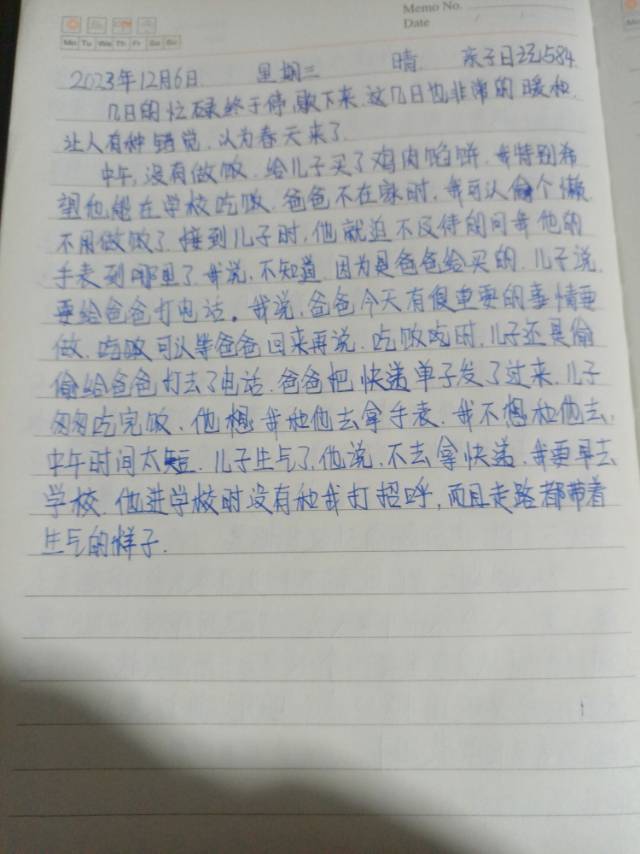 Memo No.
Date
Mo Tu We Th Fr Sa Su
2023年12月6日 星期三 晴 亲子日记1584
几日的忙碌终于停歇下来.这几日也非常的暖和.
让人有种错觉,认为春天来了.
中午,没有做饭.给儿子买了鸡肉馅饼.我特别希
望他能在学校吃饭.爸爸不在家时,我可以偷个懒
不用做饭了.接到儿子时,他就迫不及待的问我他的
手表到哪里了.我说,不知道.因为是爸爸给买的.儿子说,
要给爸爸打电话。我说,爸爸今天有很重要的事情要
做.吃饭可以等爸爸回来再说.吃饭吃时,儿子还是偷
偷给爸爸打去了电话.爸爸把快递单子发了过来.儿子
匆匆吃完饭.他想我和他去拿手表.我不想和他去,
中午时间太短.儿子生气了,他说,不去拿快递,我要早去
学校.他进学校时没有和我打招呼,而且走路都带着
生气的样子.